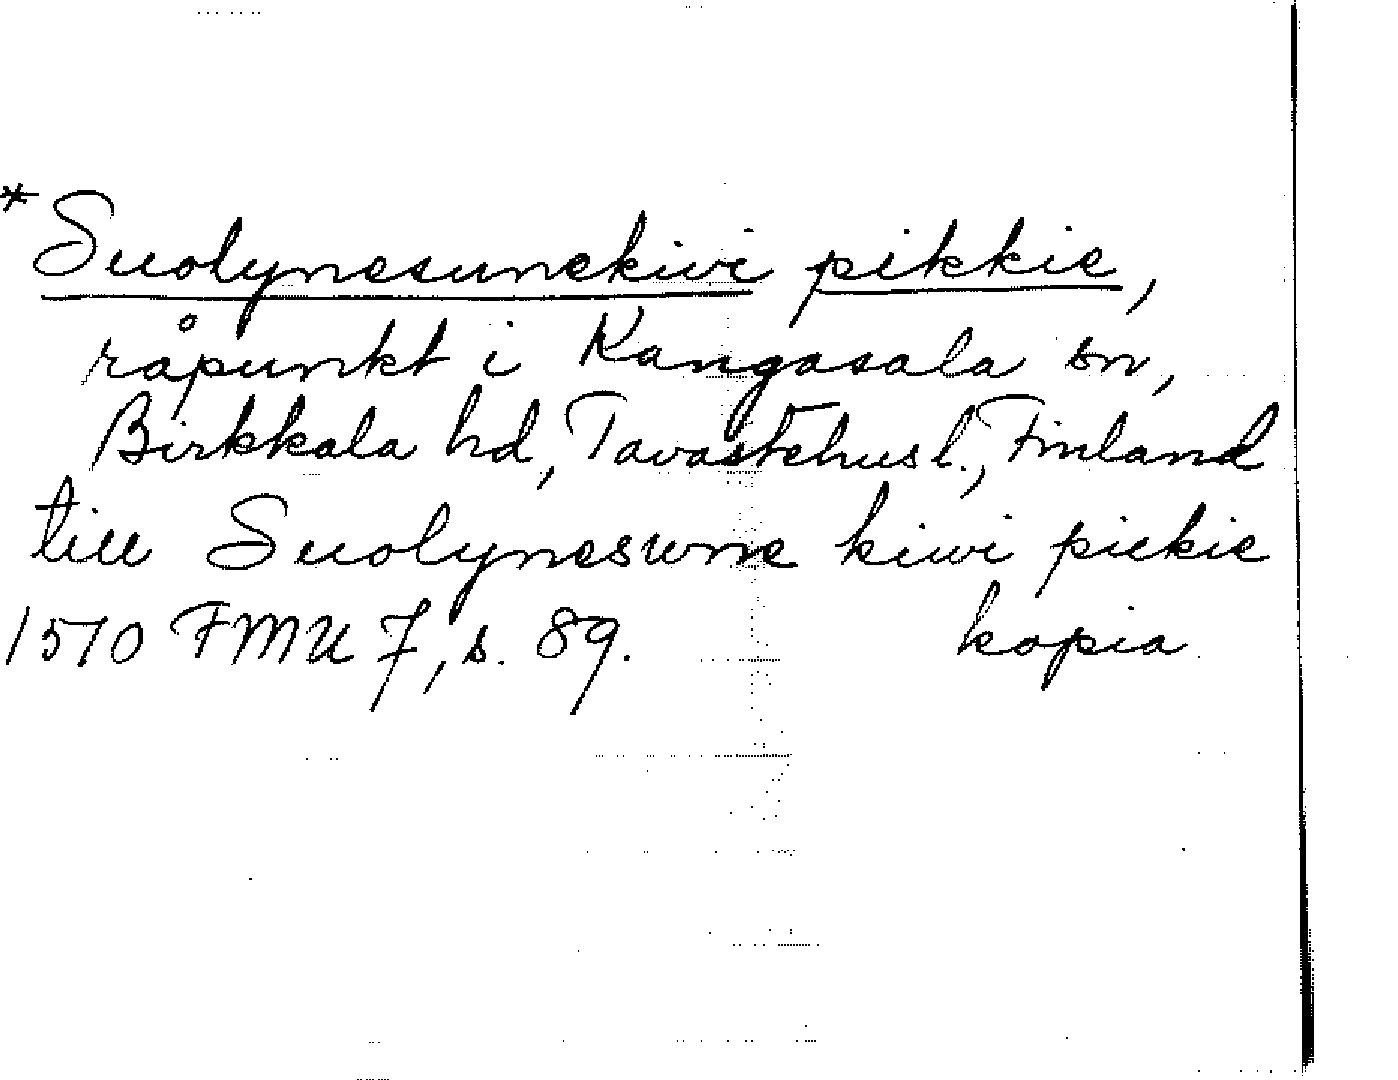 *Suolynesunekivi pikkie,
råpunkt i Kangasala sn,
Birkkala hd, Tavastehus l., Finland
till Suolyneswne kiwi piekie
1570 FMU 7, s. 89. kopia